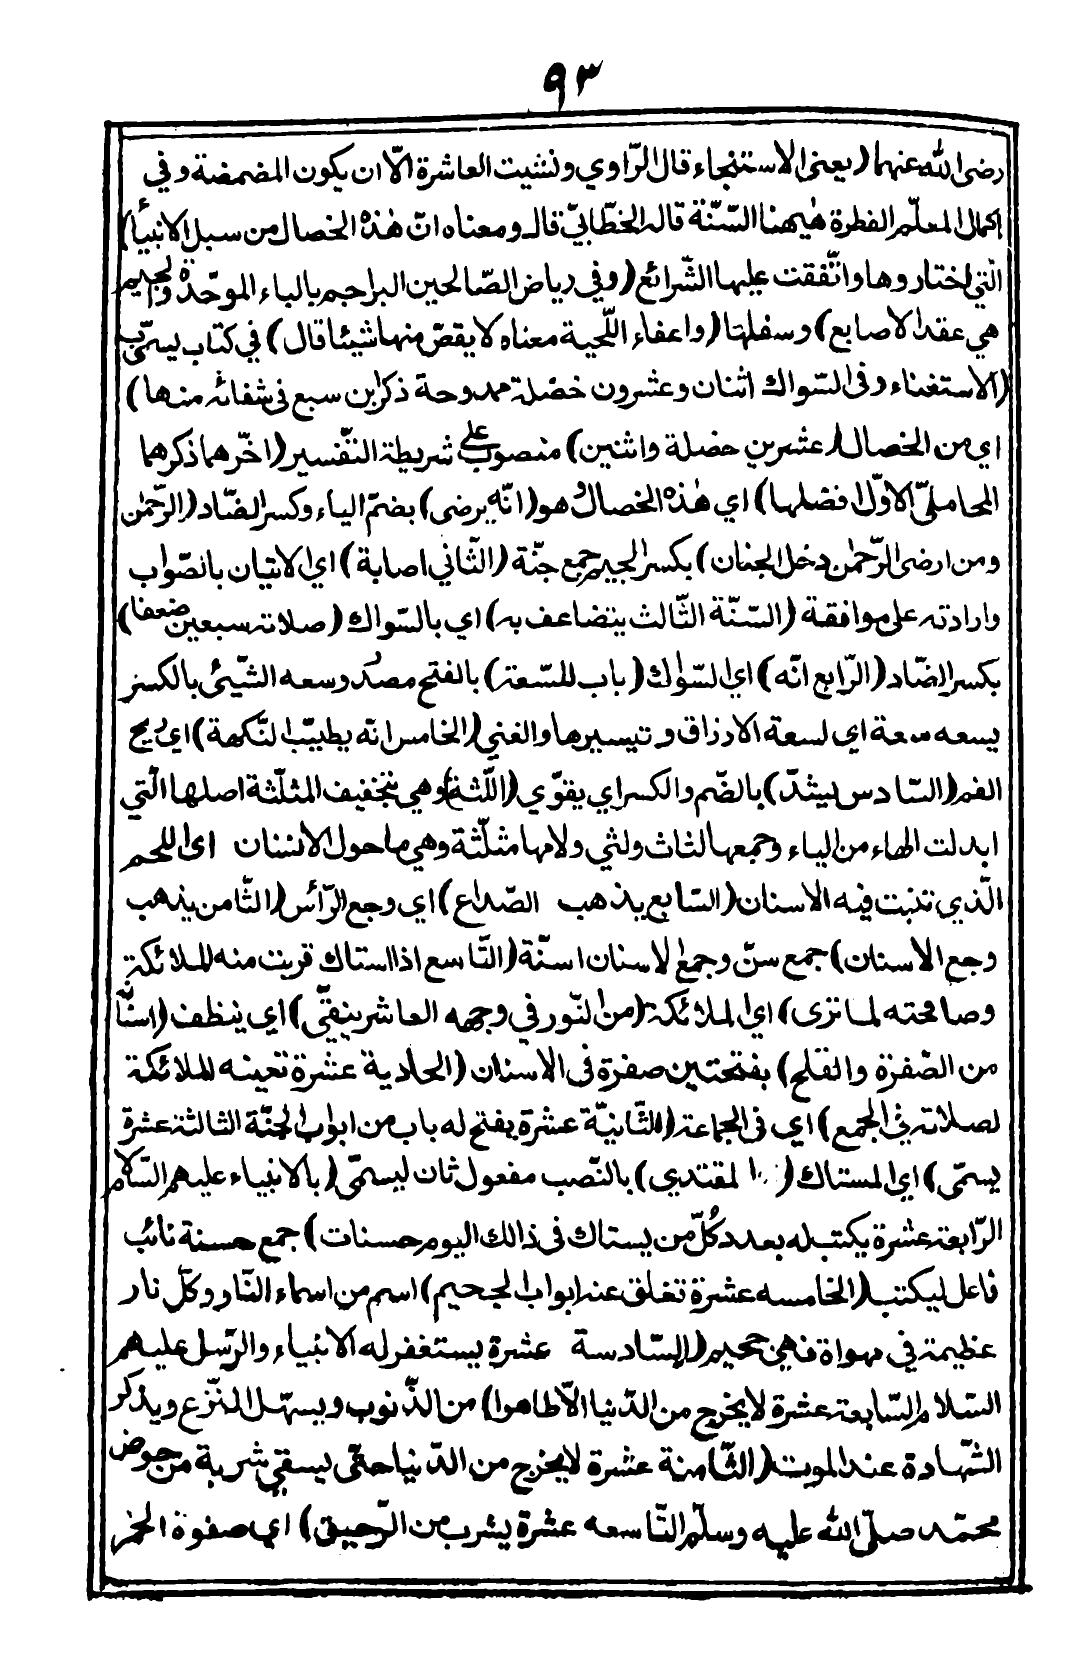 ٩٣
رضى الله عنهما (يعنى الاستنجاء قال الرّاوي ونسيت العاشرة الّا ان يكون المضمضة وفي
اكمال المعلّم الفطرة هٰيهنا السّنّة قاله الخطّابيّ قال ومعناه انّ هٰذه الخصال من سبل الانبيأ)
الّتي اختاروها واتّفقت عليها الشّرائع (وفي رياض الصّالحين البراجم بالباء الموحّدة والجيم
هي عقد الاصابع) وسفلتا (واعفاء اللّحية معناه لا يقصّ منها شيئا قال) في كتاب يسمّى ب
(الاستغناء وفى السّواك اثنان وعشرون خصلة ممدوحة ذكر ابن سبع في شفائه منها)
اي من الخصال (عشرين حضلة واثنين) منصوب على شريطة التفسير (اخّرهما ذكرهما
المحامليّ الاوّل افضلها) اي هٰذه الخصال وهو (انّه يرضى) بضمّ الياء وكسر الضّاد (الرّحمٰن
ومن ارضى الرّحمٰن دخل الجنان) بكسر الجيم جمع جنّة (الثّاني اصابة) اي الاتيان بالصّواب
وارادته على موافقة (السّنّة الثّالث يتضاعف به) اي بالسّواك (صلاته سبعين ضعفا)
بكسر الضّاد (الرّابع انّه) اي السّوٰك (باب للسّعة) بالفتح مصدر وسعه الشّيئ بالكسر
يسعه سعة اي لسعة الارزاق وتيسيرها والغني (الخامس انّه يطيّب النّكهة) اي ريح
الفم (السّادس يشدّ) بالضّم والكسر اي يقوّي (اللّثة) وهي بتخفيف المثلّثة اصلها الّتي
ابدلت الهاء من الياء وجمعها لثاث ولثي ولامها مثلّثة وهي ما حول الأسنان اى اللحم
الّذي تنبت فيه الاسنان (السّابع يذهب الصّداع) اي وجع الرّأس (الثّامن يذهب
وجع الاسنان) جمع سنّ وجمع الاسنان اسنّة (التّاسع اذا استاك قربت منه الملائكة
وصافحته لما ترى) اي الملائكة (من النّور في وجهه العاشر ينقّي) اي ينظف (اسنانه
من الصّفرة والقلح) بفتحتين صفرة فى الاسنان (الحادية عشرة تعينه الملائكة
لصلاته في الجمع) اي فى الجماعة (الثّانيّة عشرة يفتح له باب من ابواب الجنّة الثالثة عشرة
يسمّى) اي المستاك (المقتدي) بالنّصب مفعول ثان ليسمّى (بالانبياء عليهم السّلام
الرّابعة عشرة يكتب له بعدد كلّ من يستاك فى ذالك اليوم حسنات) جمع حسنة نائب
فاعل ليكتب (الخامسه عشرة تغلق عنه ابواب الجحيم) اسم من اسماء النّار وكلّ نار
عظيمة في مهواة فهي جحيم (السّادسة عشرة يستغفر له الانبياء والرّسل عليهم
السّلام السّابعة عشرة لا يخرج من الدّنيا الّا طاهرا) من الذّنوب ويسهّل النزع ويذكر
الشّهادة عند الموت (الثّامنة عشرة لا يخرج من الدّنيا حتّى يسقي شربة من حوض
محمّد صلّى الله عليه وسلّم التّاسعه عشرة يشرب من الرّحيق) اي صفوة الخمر